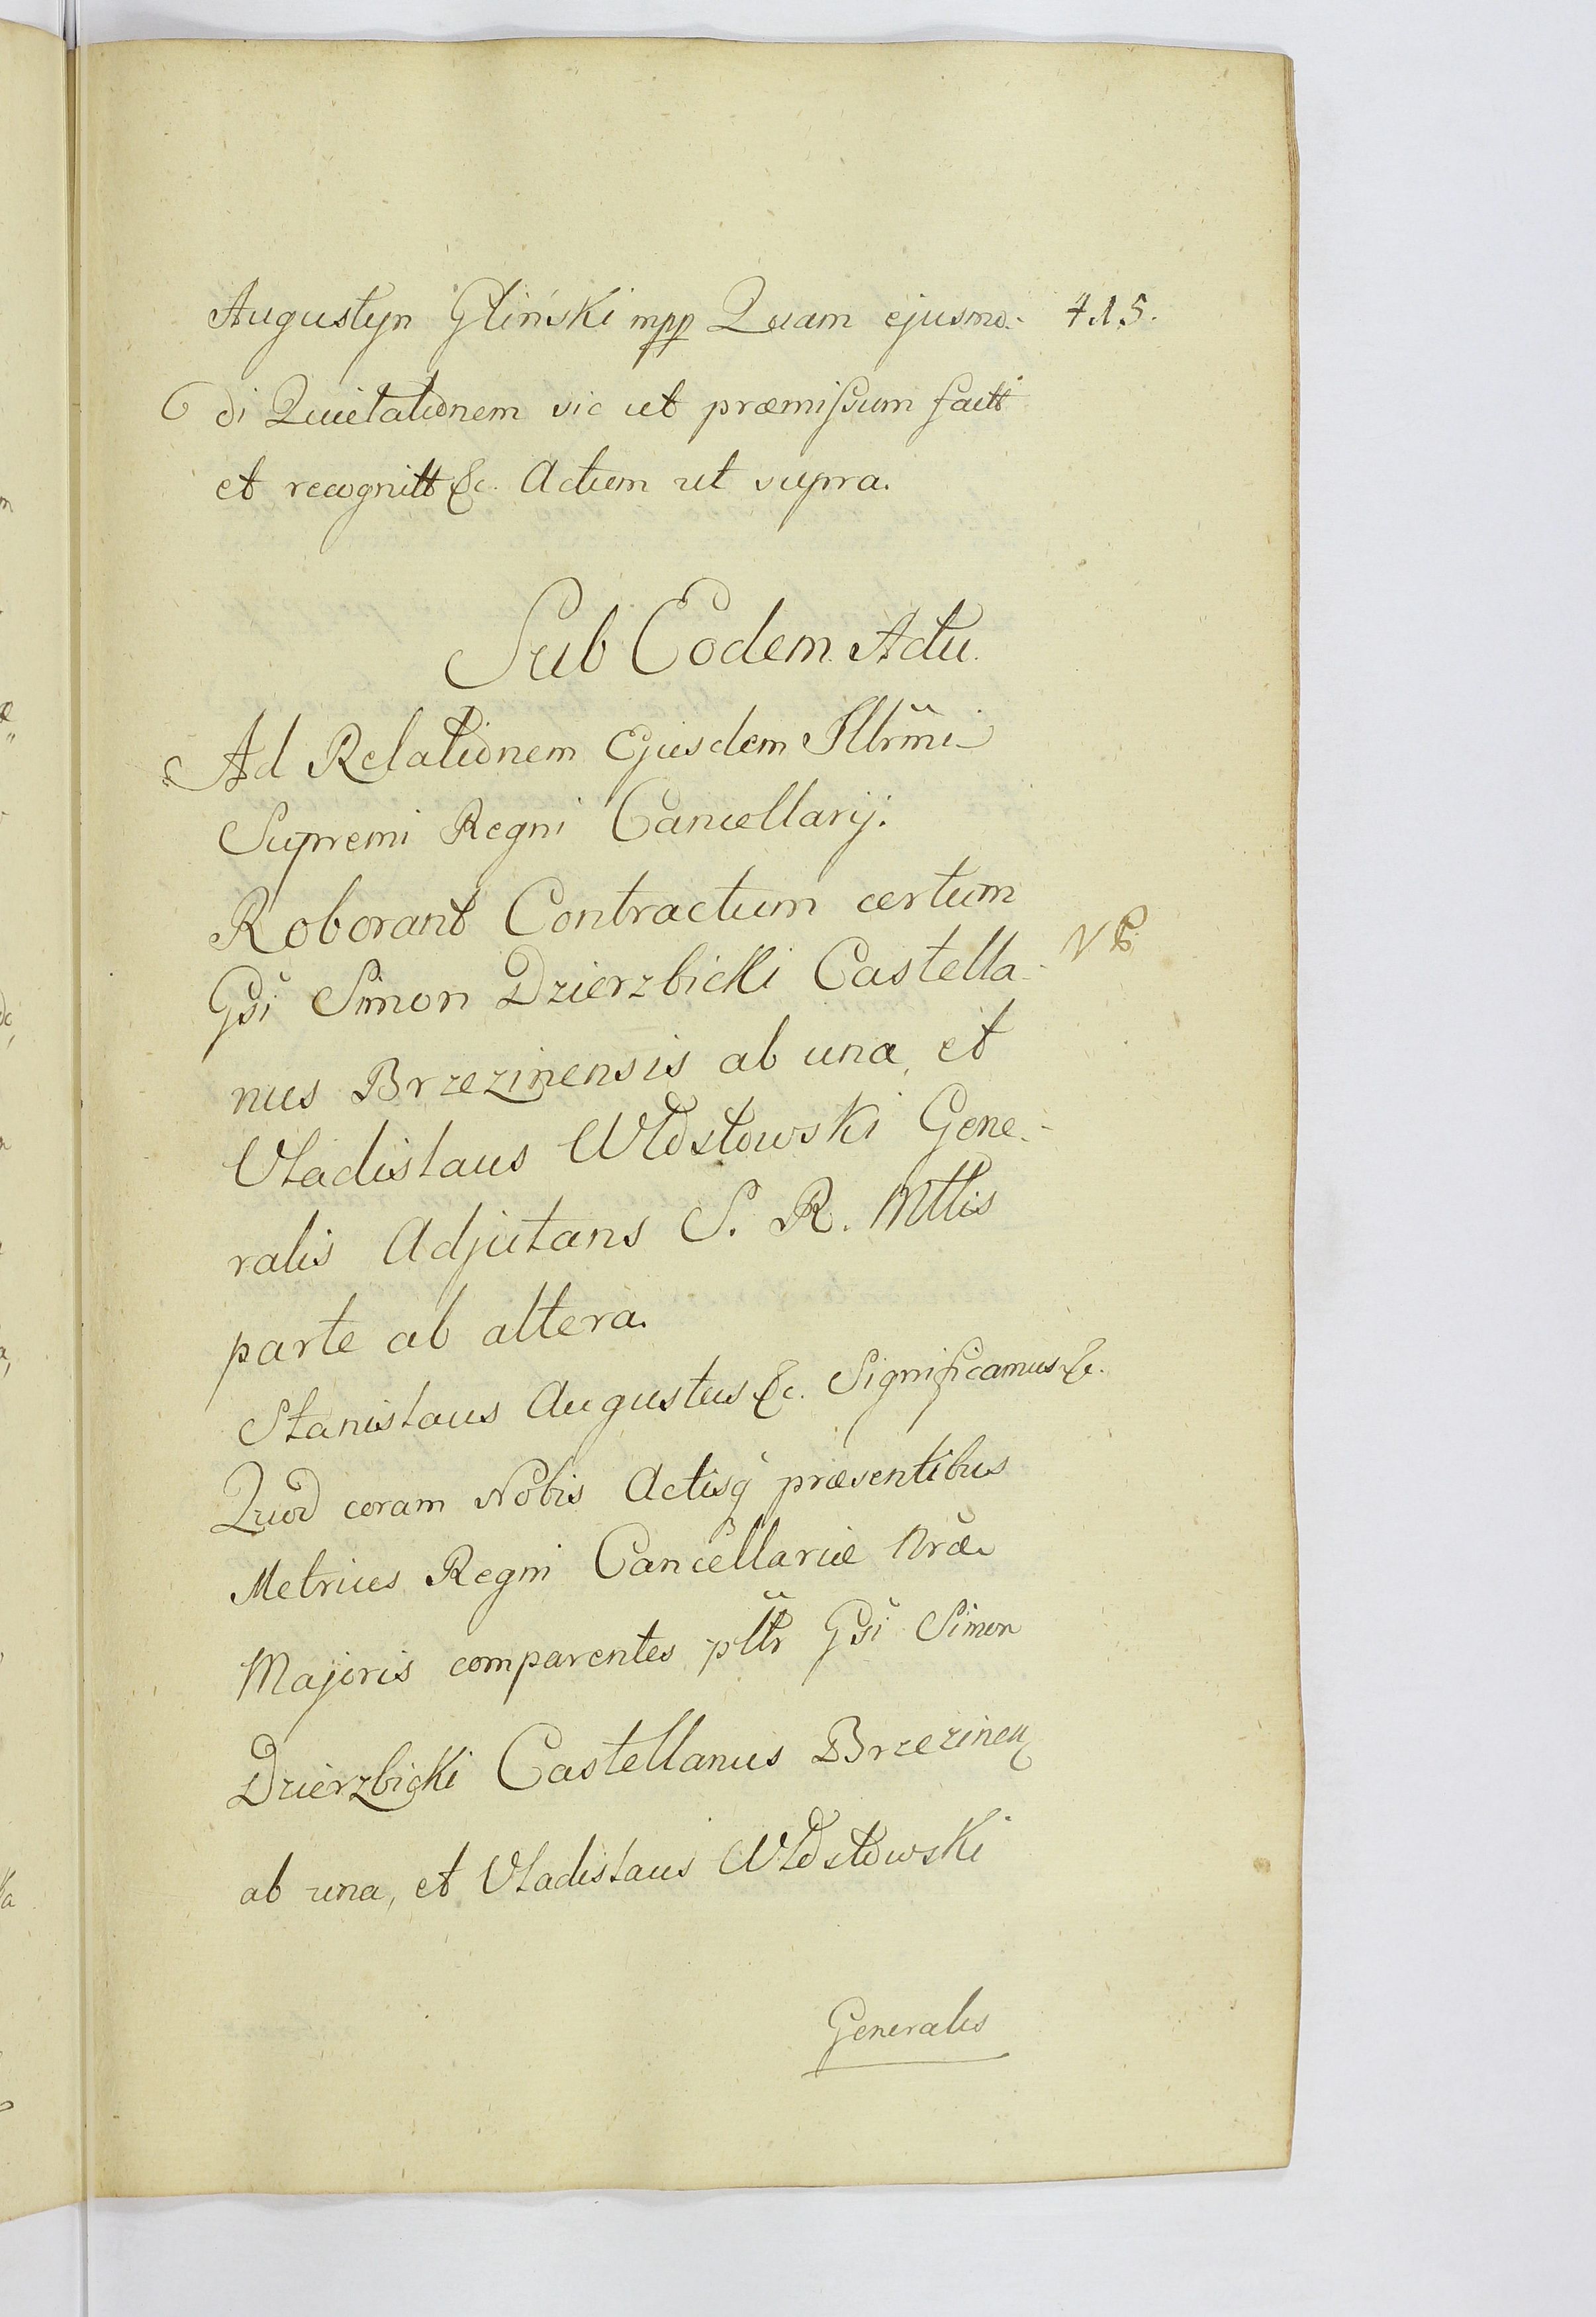 Augustyn Gliński mpp Quam ejusmo- 415.
di Quietationem sic ut præmissum facitt
et recognitt &c. Actum ut supra.
Sub Eodem Actu.
Ad Relationem Ejusdem Illrmi
Supremi Regni Cancellarij.
Roborant Contractum certum
Gsi Simon Dzierzbicki Castella-
nus Brzezinensis ab una, et
Vladislaus Włostowski Gene-
ralis Adjutans S. R. Mttis
parte ab altera.
Stanislaus Augustus &c. Significamus &c.
Quod coram Nobis Actisq̃ præsentibus
Metrices Regni Cancellariæ Nræ
Majoris comparentes pltr Gsi Simon
Dzierzbicki Castellanus Brzezinen
ab una, et Vladislaus Włostowski
Generalis